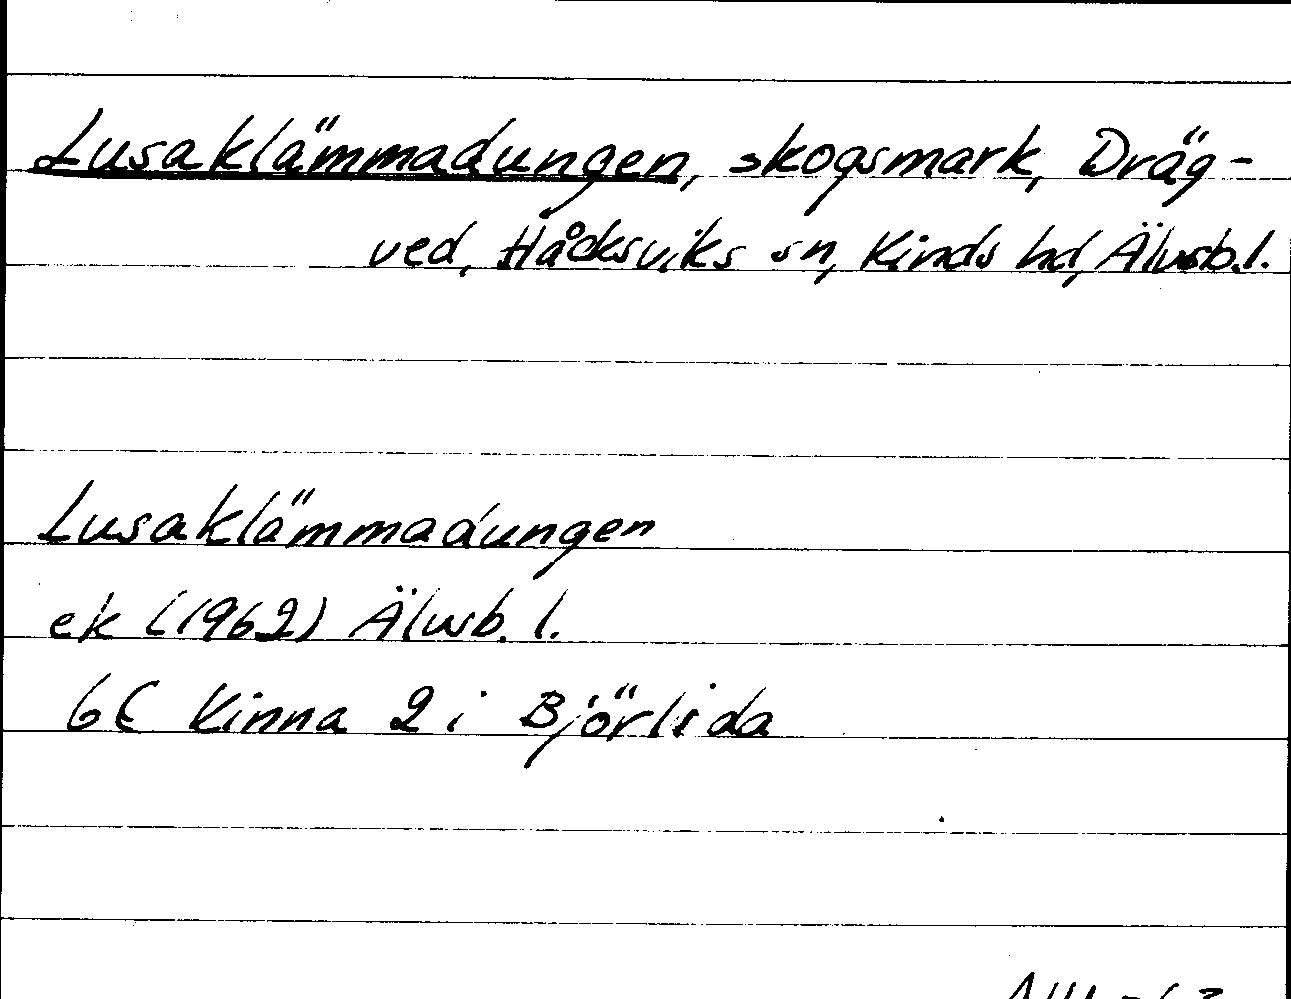 Lusaklämmadungen, skogsmark, Dräg-
ved, Håcksviks sn, Kinds hd, Älvsb.l.
Lusaklämmadungen
ek (1962) Älvsb. l.
6C Kinna 2 i Björlida